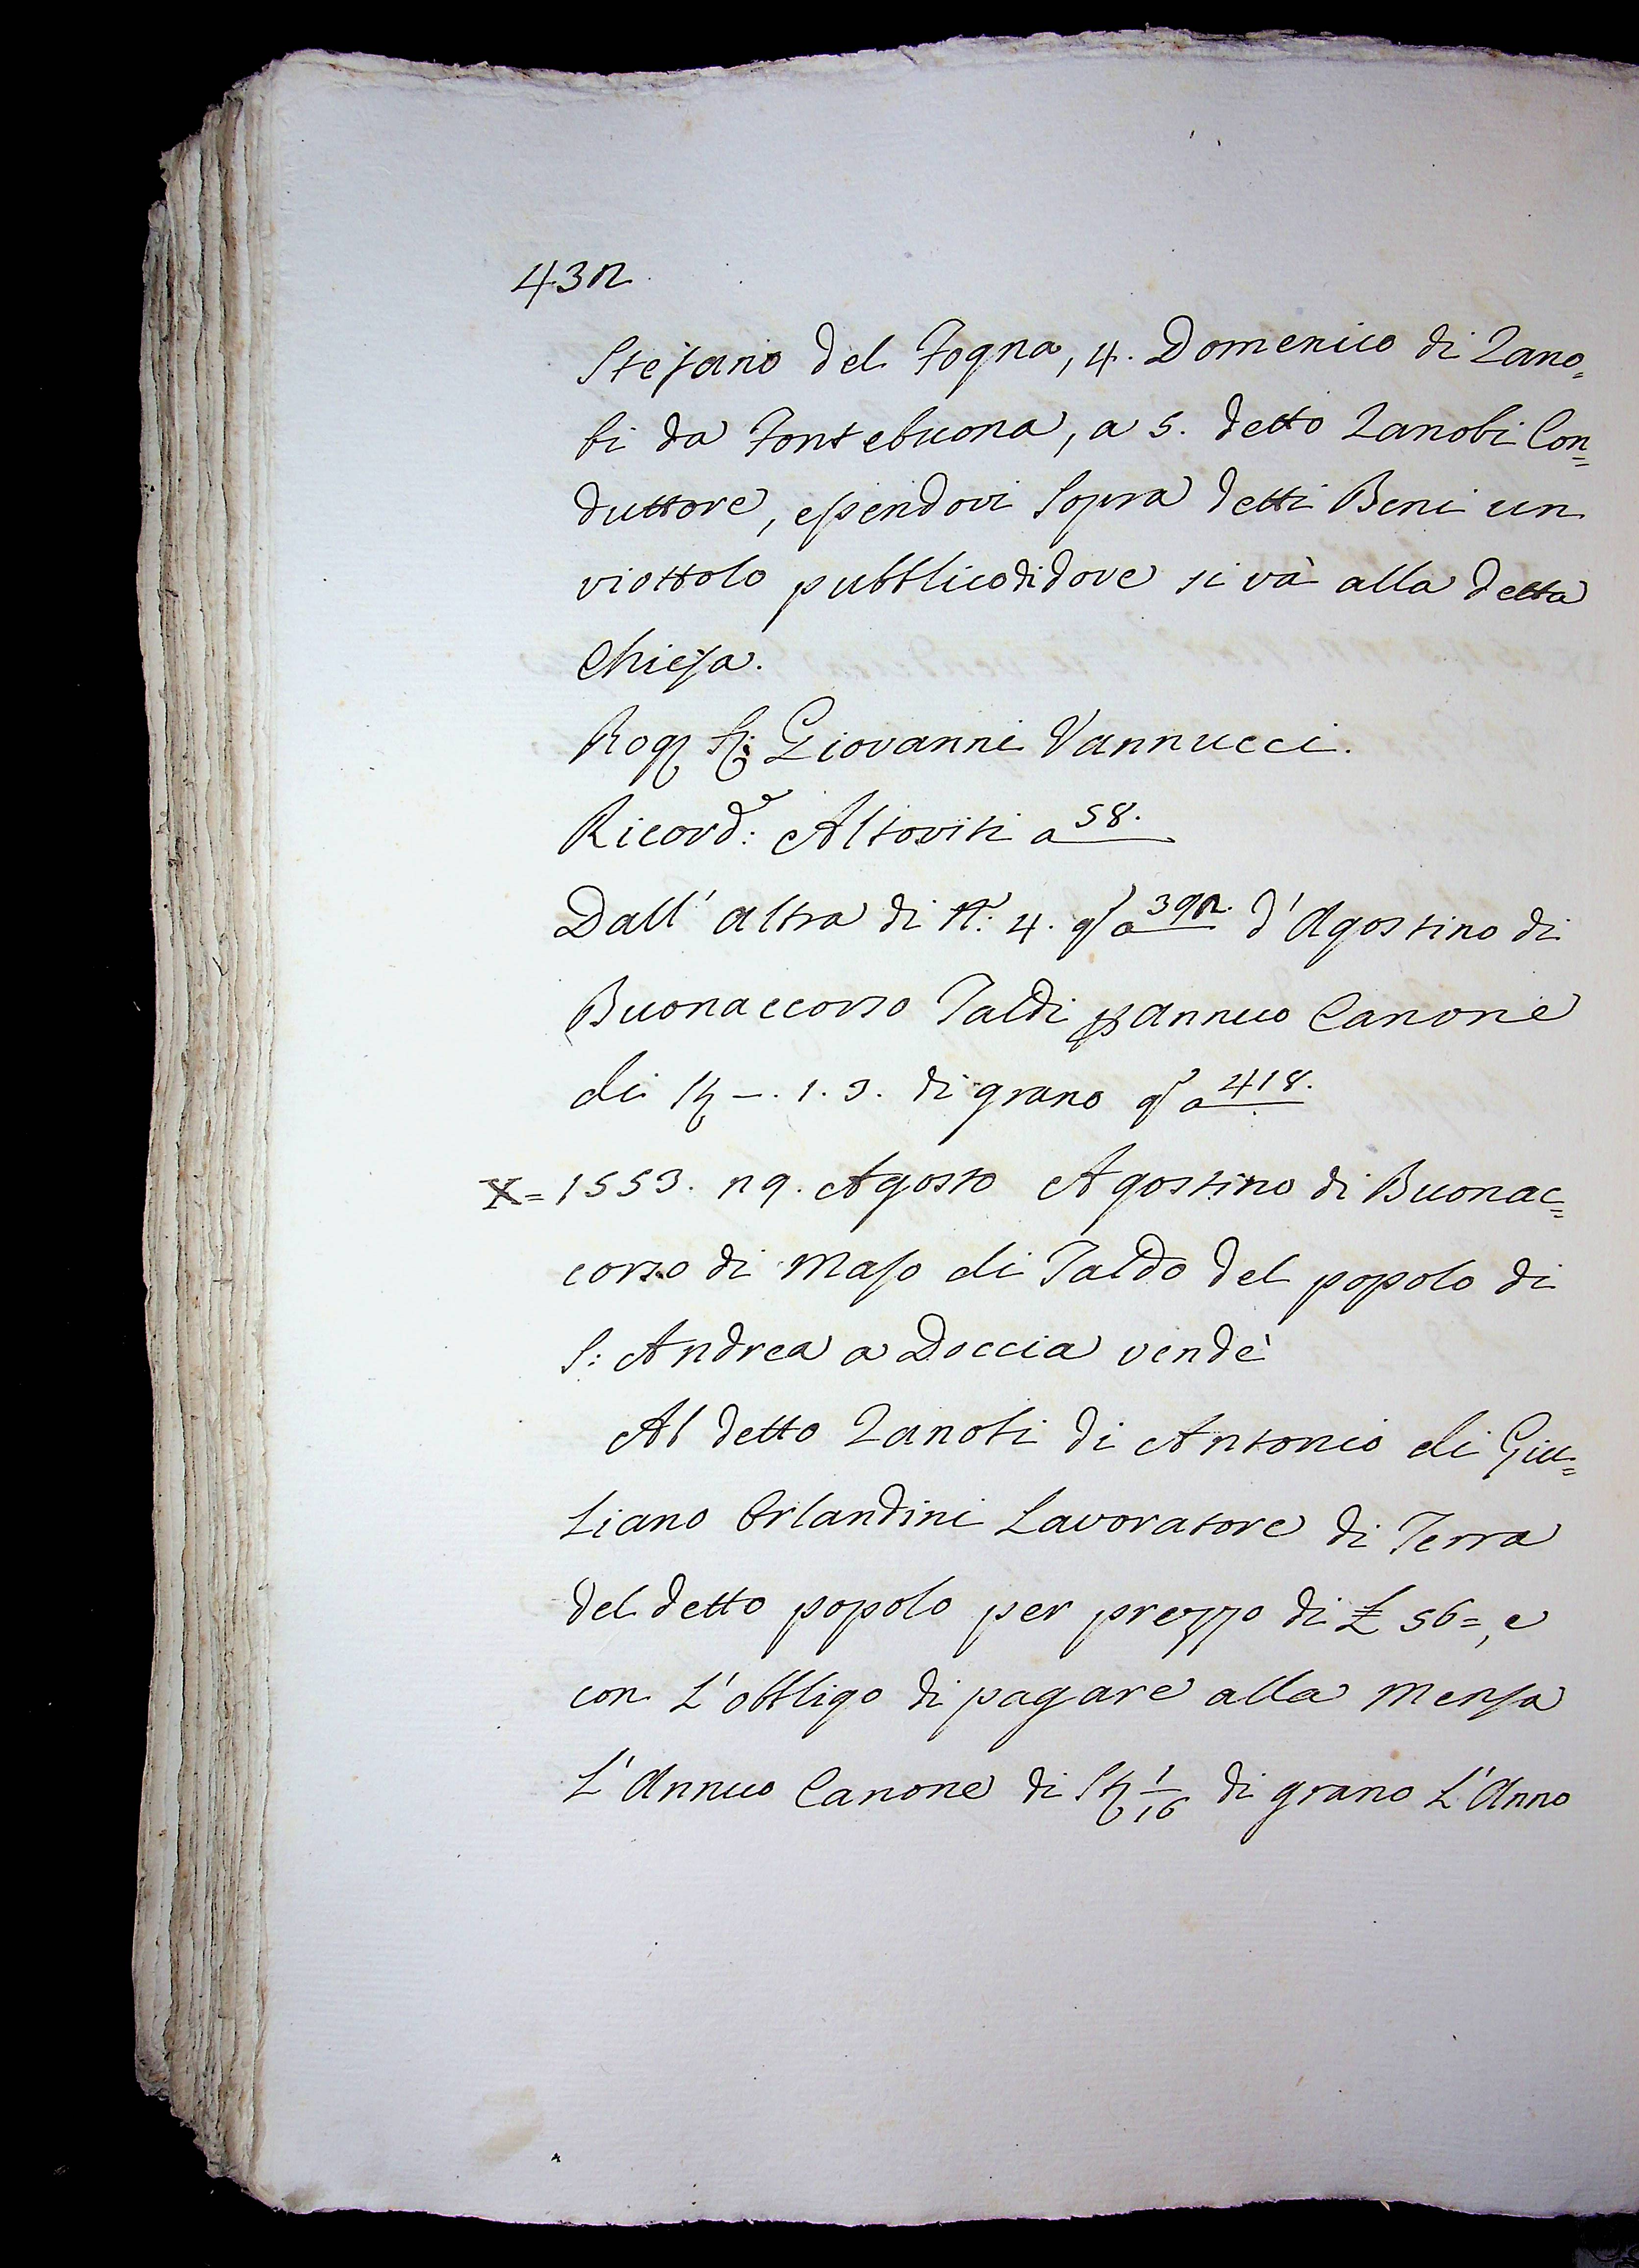 432
Stefano del Fogna, 4. Domenico di Zano=
bi da Fontebuona, a 5. detto Zanobi Con=
duttore, essendovi sopra detti Beni un
viottolo pubblico di dove si và alla detta
Chiesa.
Rog. Ser Giovanni Vannucci.
Ricord: Altoviti a 58.
Dall' altra di N. 4. qs a 392. d'Agostino di
Buonaccorso Taldi p annuo Canone
di St –. 1. 3. di grano qs a 418.
X= 1553. 29. Agosto Agostino di Buonac=
corso di Maso di Taldo del popolo di
S: Andrea a Doccia vendè
Al detto Zanobi di Antonio di Giu=
liano Orlandini Lavoratore di Terra
del detto popolo per prezzo di £ 56=, e
con l'obbligo di pagare alla Mensa
L'Annuo Canone di St 1/16 di grano L'Anno